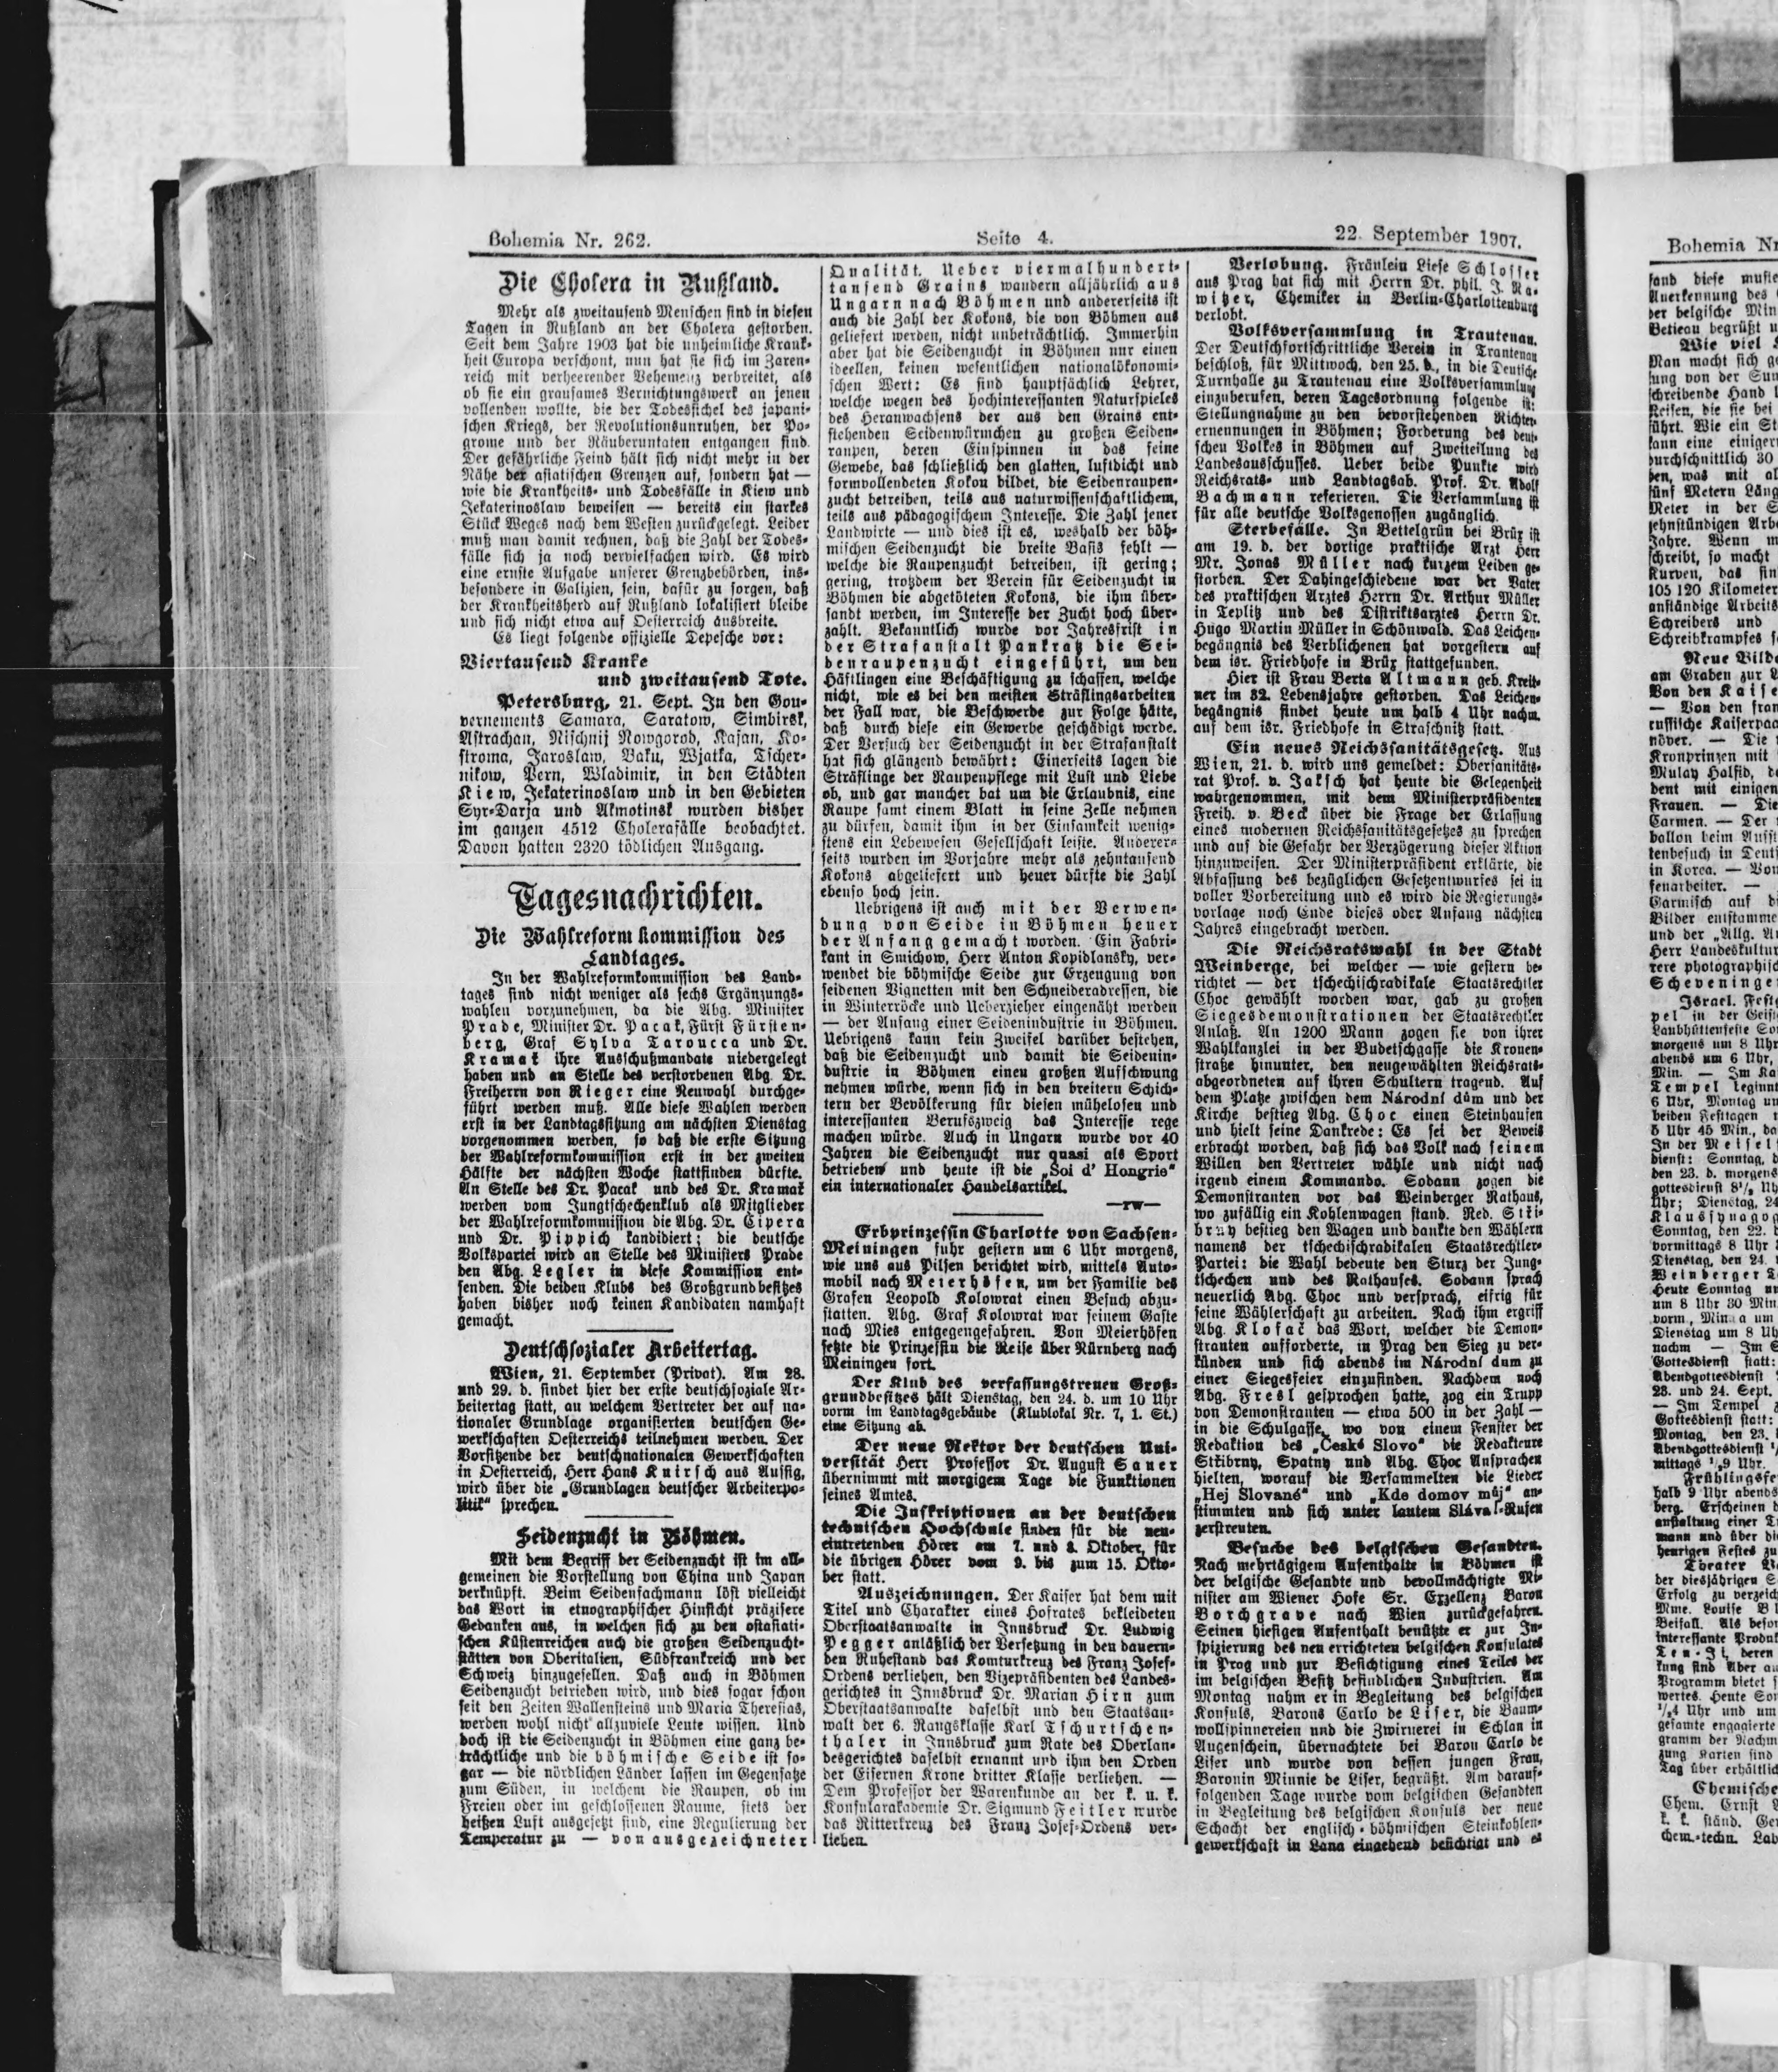 Bohemia Nr. 262.
Seite 4.
22. September 1907.
Die Cholera in Rußland.
Mehr als zweitausend Menschen sind in diesen
Tagen in Rußland an der Cholera gestorben.
Seit dem Jahre 1903 hat die unheimliche Krank-
heit Europa verschont, nun hat sie sich im Zaren-
reich mit verheerender Vehemenz verbreitet, als
ob sie ein grausames Vernichtungswerk an jenen
vollenden wollte, die der Todessichel des japani-
schen Kriegs, der Revolutionsunruhen, der Po-
grome und der Räuberuntaten entgangen sind.
Der gefährliche Feind hält sich nicht mehr in der
Nähe der asiatischen Grenzen auf, sondern hat —
wie die Krankheits- und Todesfälle in Kiew und
Jekaterinoslaw beweisen — bereits ein starkes
Stück Weges nach dem Westen zurückgelegt. Leider
muß man damit rechnen, daß die Zahl der Todes-
fälle sich ja noch vervielfachen wird. Es wird
eine ernste Aufgabe unserer Grenzbehörden, ins-
besondere in Galizien, sein, dafür zu sorgen, daß
der Krankheitsherd auf Rußland lokalisiert bleibe
und sich nicht etwa auf Oesterreich ausbreite.
Es liegt folgende offizielle Depesche vor:
Viertausend Kranke
und zweitausend Tote.
Petersburg, 21. Sept. In den Gou-
vernements Samara, Saratow, Simbirsk,
Astrachan, Nischnij Nowgorod, Kasan, Ko-
stroma, Jaroslaw, Baku, Wjatka, Tscher-
nikow, Pern, Wladimir, in den Städten
Kiew, Jekaterinoslaw und in den Gebieten
Syr-Darja und Akmotinsk wurden bisher
im ganzen 4512 Cholerafälle beobachtet.
Davon hatten 2320 tödlichen Ausgang.
Tagesnachrichten.
Die Wahlreformkommission des
Landtages.
In der Wahlreformkommission des Land-
tages sind nicht weniger als sechs Ergänzungs-
wahlen vorzunehmen, da die Abg. Minister
Prade, Minister Dr. Pacak, Fürst Fürsten-
berg, Graf Sylva Taroucca und Dr.
Kramař ihre Ausschußmandate niedergelegt
haben und an Stelle des verstorbenen Abg. Dr.
Freiherrn von Rieger eine Neuwahl durchge-
führt werden muß. Alle diese Wahlen werden
erst in der Landtagssitzung am nächsten Dienstag
vorgenommen werden, so daß die erste Sitzung
der Wahlreformkommission erst in der zweiten
Hälfte der nächsten Woche stattfinden dürfte.
An Stelle des Dr. Pacak und des Dr. Kramař
werden vom Jungtschechenklub als Mitglieder
der Wahlreformkommission die Abg. Dr. Cipera
und Dr. Pippich kandidiert; die deutsche
Volkspartei wird an Stelle des Ministers Prade
den Abg. Legler in diese Kommission ent-
senden. Die beiden Klubs des Großgrundbesitzes
haben bisher noch keinen Kandidaten namhaft
gemacht.
Deutschsozialer Arbeitertag.
Wien, 21. September (Privat). Am 28.
und 29. d. findet hier der erste deutschsoziale Ar-
beitertag statt, an welchem Vertreter der auf na-
tionaler Grundlage organisierten deutschen Ge-
werkschaften Oesterreichs teilnehmen werden. Der
Vorsitzende der deutschnationalen Gewerkschaften
in Oesterreich, Herr Hans Knirsch aus Aussig,
wird über die „Grundlagen deutscher Arbeiterpo-
litik“ sprechen.
Seidenzucht in Böhmen.
Mit dem Begriff der Seidenzucht ist im all-
gemeinen die Vorstellung von China und Japan
verknüpft. Beim Seidenfachmann löst vielleicht
das Wort in etnographischer Hinsicht präzisere
Gedanken aus, in welchen sich zu den ostasiati-
schen Küstenreichen auch die großen Seidenzucht-
stätten von Oberitalien, Südfrankreich und der
Schweiz hinzugesellen. Daß auch in Böhmen
Seidenzucht betrieben wird, und dies sogar schon
seit den Zeiten Wallensteins und Maria Theresias,
werden wohl nicht allzuviele Leute wissen. Und
doch ist die Seidenzucht in Böhmen eine ganz be-
trächtliche und die böhmische Seide ist so-
gar — die nördlichen Länder lassen im Gegensatze
zum Süden, in welchem die Raupen, ob im
Freien oder im geschlossenen Raume, stets der
heißen Luft ausgesetzt sind, eine Regulierung der
Temperatur zu — von ausgezeichneter
Qualität. Ueber viermalhundert-
tausend Grains wandern alljährlich aus
Ungarn nach Böhmen und andererseits ist
auch die Zahl der Kokons, die von Böhmen aus
geliefert werden, nicht unbeträchtlich. Immerhin
aber hat die Seidenzucht in Böhmen nur einen
ideellen, keinen wesentlichen nationalökonomi-
schen Wert: Es sind hauptsächlich Lehrer,
welche wegen des hochinteressanten Naturspieles
des Heranwachsens der aus den Grains ent-
stehenden Seidenwürmchen zu großen Seiden-
raupen, deren Einspinnen in das feine
Gewebe, das schließlich den glatten, luftdicht und
formvollendeten Kokon bildet, die Seidenraupen-
zucht betreiben, teils aus naturwissenschaftlichem,
teils aus pädagogischem Interesse. Die Zahl jener
Landwirte — und dies ist es, weshalb der böh-
mischen Seidenzucht die breite Basis fehlt —
welche die Raupenzucht betreiben, ist gering;
gering, trotzdem der Verein für Seidenzucht in
Böhmen die abgetöteten Kokons, die ihm über-
sandt werden, im Interesse der Zucht hoch über-
zahlt. Bekanntlich wurde vor Jahresfrist in
der Strafanstalt Pankratz die Sei-
denraupenzucht eingeführt, um den
Häftlingen eine Beschäftigung zu schaffen, welche
nicht, wie es bei den meisten Sträflingsarbeiten
der Fall war, die Beschwerde zur Folge hätte,
daß durch diese ein Gewerbe geschädigt werde.
Der Versuch der Seidenzucht in der Strafanstalt
hat sich glänzend bewährt: Einerseits lagen die
Sträflinge der Raupenpflege mit Lust und Liebe
ob, und gar mancher bat um die Erlaubnis, eine
Raupe samt einem Blatt in seine Zelle nehmen
zu dürfen, damit ihm in der Einsamkeit wenig-
stens ein Lebewesen Gesellschaft leiste. Anderer-
seits wurden im Vorjahre mehr als zehntausend
Kokons abgeliefert und heuer dürfte die Zahl
ebenso hoch sein.
Uebrigens ist auch mit der Verwen-
dung von Seide in Böhmen heuer
der Anfang gemacht worden. Ein Fabri-
kant in Smichow, Herr Anton Kopidlansky, ver-
wendet die böhmische Seide zur Erzeugung von
seidenen Vignetten mit den Schneideradressen, die
in Winterröcke und Ueberzieher eingenäht werden
— der Anfang einer Seidenindustrie in Böhmen.
Uebrigens kann kein Zweifel darüber bestehen,
daß die Seidenzucht und damit die Seidenin-
dustrie in Böhmen einen großen Aufschwung
nehmen würde, wenn sich in den breitern Schich-
tern der Bevölkerung für diesen mühelosen und
interessanten Berufszweig das Interesse rege
machen würde. Auch in Ungarn wurde vor 40
Jahren die Seidenzucht nur quasi als Sport
betrieben und heute ist die „Soi d' Hongrie“
ein internationaler Handelsartikel.
—rw—
Erbprinzessin Charlotte von Sachsen-
Meiningen fuhr gestern um 6 Uhr morgens,
wie uns aus Pilsen berichtet wird, mittels Auto-
mobil nach Meierhöfen, um der Familie des
Grafen Leopold Kolowrat einen Besuch abzu-
statten. Abg. Graf Kolowrat war seinem Gaste
nach Mies entgegengefahren. Von Meierhöfen
setzte die Prinzessin die Reise über Nürnberg nach
Meiningen fort.
Der Klub des verfassungstreuen Groß-
grundbesitzes hält Dienstag, den 24. d. um 10 Uhr
vorm im Landtagsgebäude (Klublokal Nr. 7, 1. St.)
eine Sitzung ab.
Der neue Rektor der deutschen Uni-
versität Herr Professor Dr. August Sauer
übernimmt mit morgigem Tage die Funktionen
seines Amtes.
Die Inskriptionen an der deutschen
technischen Hochschule finden für die neu-
eintretenden Hörer am 7. und 8. Oktober, für
die übrigen Hörer vom 9. bis zum 15. Okto-
ber statt.
Auszeichnungen. Der Kaiser hat dem mit
Titel und Charakter eines Hofrates bekleideten
Oberstaatsanwalte in Innsbruck Dr. Ludwig
Pegger anläßlich der Versetzung in den dauern-
den Ruhestand das Komturkreuz des Franz Josef-
Ordens verliehen, den Vizepräsidenten des Landes-
gerichtes in Innsbruck Dr. Marian Hirn zum
Oberstaatsanwalte daselbst und den Staatsan-
walt der 6. Rangsklasse Karl Tschurtschen-
thaler in Innsbruck zum Rate des Oberlan-
desgerichtes daselbst ernannt und ihm den Orden
der Eisernen Krone dritter Klasse verliehen. —
Dem Professor der Warenkunde an der k. u. k.
Konsularakademie Dr. Sigmund Feitler wurde
das Ritterkreuz des Franz Josef-Ordens ver-
liehen.
Verlobung. Fräulein Liese Schlosser
aus Prag hat sich mit Herrn Dr. phil. J. Ra-
witzer, Chemiker in Berlin-Charlottenburg
verlobt.
Volksversammlung in Trautenau.
Der Deutschfortschrittliche Verein in Trautenau
beschloß, für Mittwoch, den 25. d., in die Deutsche
Turnhalle zu Trautenau eine Volksversammlung
einzuberufen, deren Tagesordnung folgende ist:
Stellungnahme zu den bevorstehenden Richter-
ernennungen in Böhmen; Forderung des deut-
schen Volkes in Böhmen auf Zweiteilung des
Landesausschusses. Ueber beide Punkte wird
Reichsrats- und Landtagsab. Prof. Dr. Adolf
Bachmann referieren. Die Versammlung ist
für alle deutsche Volksgenossen zugänglich.
Sterbefälle. In Bettelgrün bei Brüx ist
am 19. d. der dortige praktische Arzt Herr
Mr. Jonas Müller nach kurzem Leiden ge-
storben. Der Dahingeschiedene war der Vater
des praktischen Arztes Herrn Dr. Arthur Müller
in Teplitz und des Distriktsarztes Herrn Dr.
Hugo Martin Müller in Schönwald. Das Leichen-
begängnis des Verblichenen hat vorgestern auf
dem isr. Friedhofe in Brüx stattgefunden.
Hier ist Frau Berta Altmann geb. Kreit-
ner im 32. Lebensjahre gestorben. Das Leichen-
begängnis findet heute um halb 4 Uhr nachm.
auf dem isr. Friedhofe in Straschnitz statt.
Ein neues Reichssanitätsgesetz. Aus
Wien, 21. d. wird uns gemeldet: Obersanitäts-
rat Prof. v. Jaksch hat heute die Gelegenheit
wahrgenommen, mit dem Ministerpräsidenten
Freih. v. Beck über die Frage der Erlassung
eines modernen Reichssanitätsgesetzes zu sprechen
und auf die Gefahr der Verzögerung dieser Aktion
hinzuweisen. Der Ministerpräsident erklärte, die
Abfassung des bezüglichen Gesetzentwurfes sei in
voller Vorbereitung und es wird die Regierungs-
vorlage noch Ende dieses oder Anfang nächsten
Jahres eingebracht werden.
Die Reichsratswahl in der Stadt
Weinberge, bei welcher — wie gestern be-
richtet — der tschechischradikale Staatsrechtler
Choc gewählt worden war, gab zu großen
Siegesdemonstrationen der Staatsrechtler
Anlaß. An 1200 Mann zogen sie von ihrer
Wahlkanzlei in der Budetschgasse die Kronen-
straße hinunter, den neugewählten Reichsrats-
abgeordneten auf ihren Schultern tragend. Auf
dem Platze zwischen dem Národní dům und der
Kirche bestieg Abg. Choc einen Steinhaufen
und hielt seine Dankrede: Es sei der Beweis
erbracht worden, daß sich das Volk nach seinem
Willen den Vertreter wähle und nicht nach
irgend einem Kommando. Sodann zogen die
Demonstranten vor das Weinberger Rathaus,
wo zufällig ein Kohlenwagen stand. Red. Stři-
brny bestieg den Wagen und dankte den Wählern
namens der tschechischradikalen Staatsrechtler-
Partei: die Wahl bedeute den Sturz der Jung-
tschechen und des Rathauses. Sodann sprach
neuerlich Abg. Choc und versprach, eifrig für
seine Wählerschaft zu arbeiten. Nach ihm ergriff
Abg. Klofač das Wort, welcher die Demon-
stranten aufforderte, in Prag den Sieg zu ver-
künden und sich abends im Národní dum zu
einer Siegesfeier einzufinden. Nachdem noch
Abg. Fresl gesprochen hatte, zog ein Trupp
von Demonstranten — etwa 500 in der Zahl —
in die Schulgasse, wo von einem Fenster der
Redaktion des „České Slovo“ die Redakteure
Střibrny, Spatny und Abg. Choc Ansprachen
hielten, worauf die Versammelten die Lieder
„Hej Slované“ und „Kde domov můj“ an-
stimmten und sich unter lautem Sláva!-Rufen
zerstreuten.
Besuche des belgischen Gesandten.
Nach mehrtägigem Aufenthalte in Böhmen ist
der belgische Gesandte und bevollmächtigte Mi-
nister am Wiener Hofe Sr. Exzellenz Baron
Borchgrave nach Wien zurückgefahren.
Seinen hiesigen Aufenthalt benützte er zur In-
spizierung des neu errichteten belgischen Konsulates
in Prag und zur Besichtigung eines Teiles der
im belgischen Besitz befindlichen Industrien. Am
Montag nahm er in Begleitung des belgischen
Konsuls, Barons Carlo de Liser, die Baum-
wollspinnereien und die Zwirnerei in Schlan in
Augenschein, übernachtete bei Baron Carlo de
Liser und wurde von dessen jungen Frau,
Baronin Minnie de Liser, begrüßt. Am darauf-
folgenden Tage wurde vom belgischen Gesandten
in Begleitung des belgischen Konsuls der neue
Schacht der englisch-böhmischen Steinkohlen-
gewerkschaft in Lana eingehend besichtigt und es
Bohemia